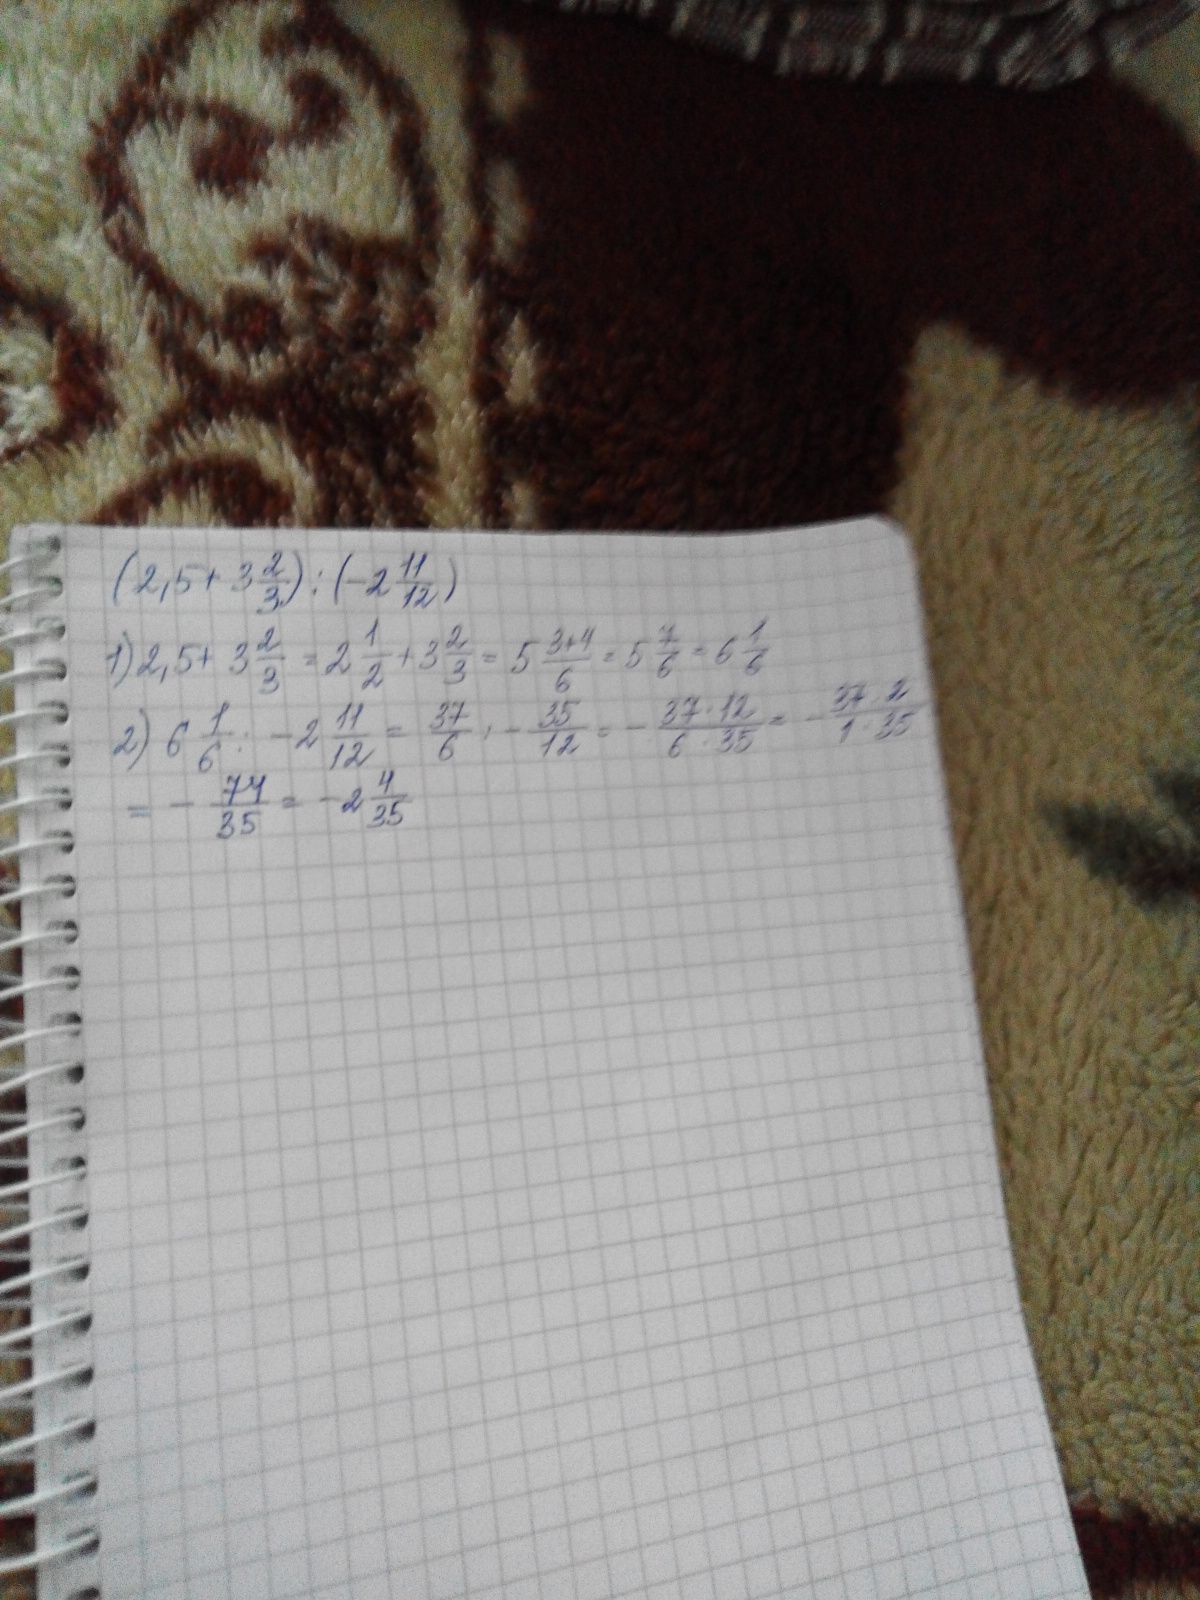 (2,5+ 3 2/3) : (-2 11/12)
1) 2,5+ 3 2/3 = 2 1/2 + 3 2/3 = 5 3+4/6 = 5 7/6 = 6 1/6
2) 6 1/6 : -2 11/12 = 37/6 : - 35/12 = - 37·12/6·35 = - 37·2/1·35
= - 74/35 = -2 4/35